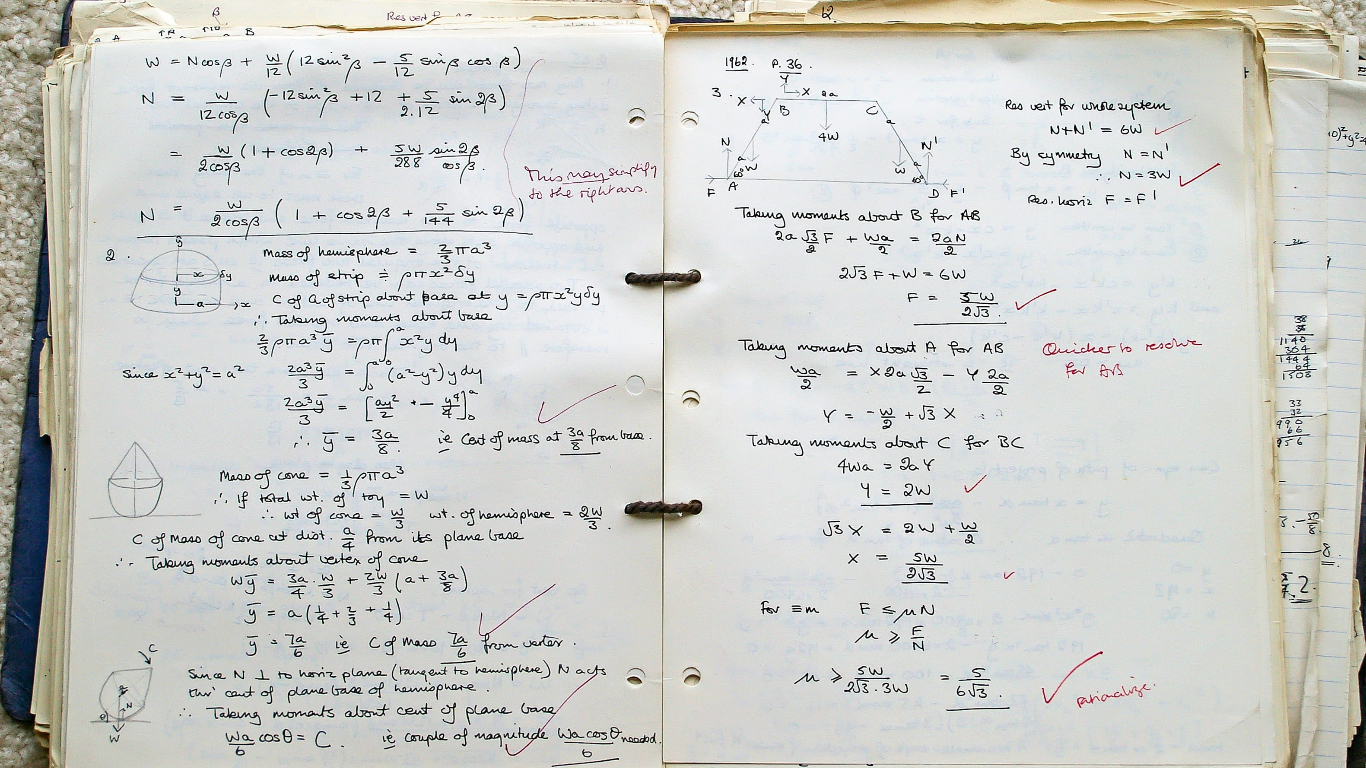 β
Res vert
A
B
W = Ncosβ + W/12 (12sin²β − 5/12 sinβ cosβ)
N = W/12cosβ (−12sin²β + 12 + 5/2.12 sin2β)
= W/2cosβ (1 + cos2β) + 5W/288 sin2β/cosβ.
This may simplify
to the right ans.
N = W/2cosβ (1 + cos2β + 5/144 sin2β)
2.
y
x
δy
y
a
x
Mass of hemisphere = 2/3 πa³
mass of strip ≑ ρπx²δy
C of G of strip about base at y = ρπx²yδy
∴ Taking moments about base
2/3 ρπa³ȳ = ρπ∫₀ᵃ x²y dy
Since x²+y²=a² 2a³ȳ/3 = ∫₀ᵃ (a²−y²)y dy
2a³ȳ/3 = [ay²/2 + − y⁴/4]₀ᵃ
∴ ȳ = 3a/8. ie Cent of mass at 3a/8 from base.
Mass of cone = 1/3 ρπa³
∴ If total wt. of toy = W
∴ wt of cone = W/3 wt. of hemisphere = 2W/3.
C of Mass of cone at dist. a/4 from its plane base
∴ Taking moments about vertex of cone
Wȳ = 3a/4 . W/3 + 2W/3 (a + 3a/8)
ȳ = a(1/4 + 2/3 + 1/4)
ȳ = 7a/6 ie C of Mass 7a/6 from vertex.
C
N
W
Since N ⊥ to horiz plane (tangent to hemisphere) N acts
thr' cent of plane base of hemisphere.
∴ Taking moments about cent of plane base
Wa/6 cosθ = C. ie couple of magnitude Wa cosθ/6 needed.
12.
1962. P. 36
3.
Y
X
X
2a
B
C
a
a
4W
N
N'
a
W
a
W
60°
60°
F
A
D
F'
Res vert for whole system
N+N' = 6W
By symmetry N = N'
∴ N = 3W
Res. horiz F = F'
Taking moments about B for AB
2a √3/2 F + Wa/2 = 2aN/2
2√3 F + W = 6W
F = 5W/2√3.
Taking moments about A for AB
Quicker to resolve
for AB
Wa/2 = X 2a √3/2 − Y 2a/2
Y = −W/2 + √3 X
Taking moments about C for BC
4Wa = 2aY
Y = 2W
√3 X = 2W + W/2
X = 5W/2√3
For ≡m F ≤ μN
μ ≥ F/N
μ ≥ 5W/2√3.3W = 5/6√3.
rationalize.
38
38
1140
304
1444
64
1508
33
32
990
66
956
8.
2.